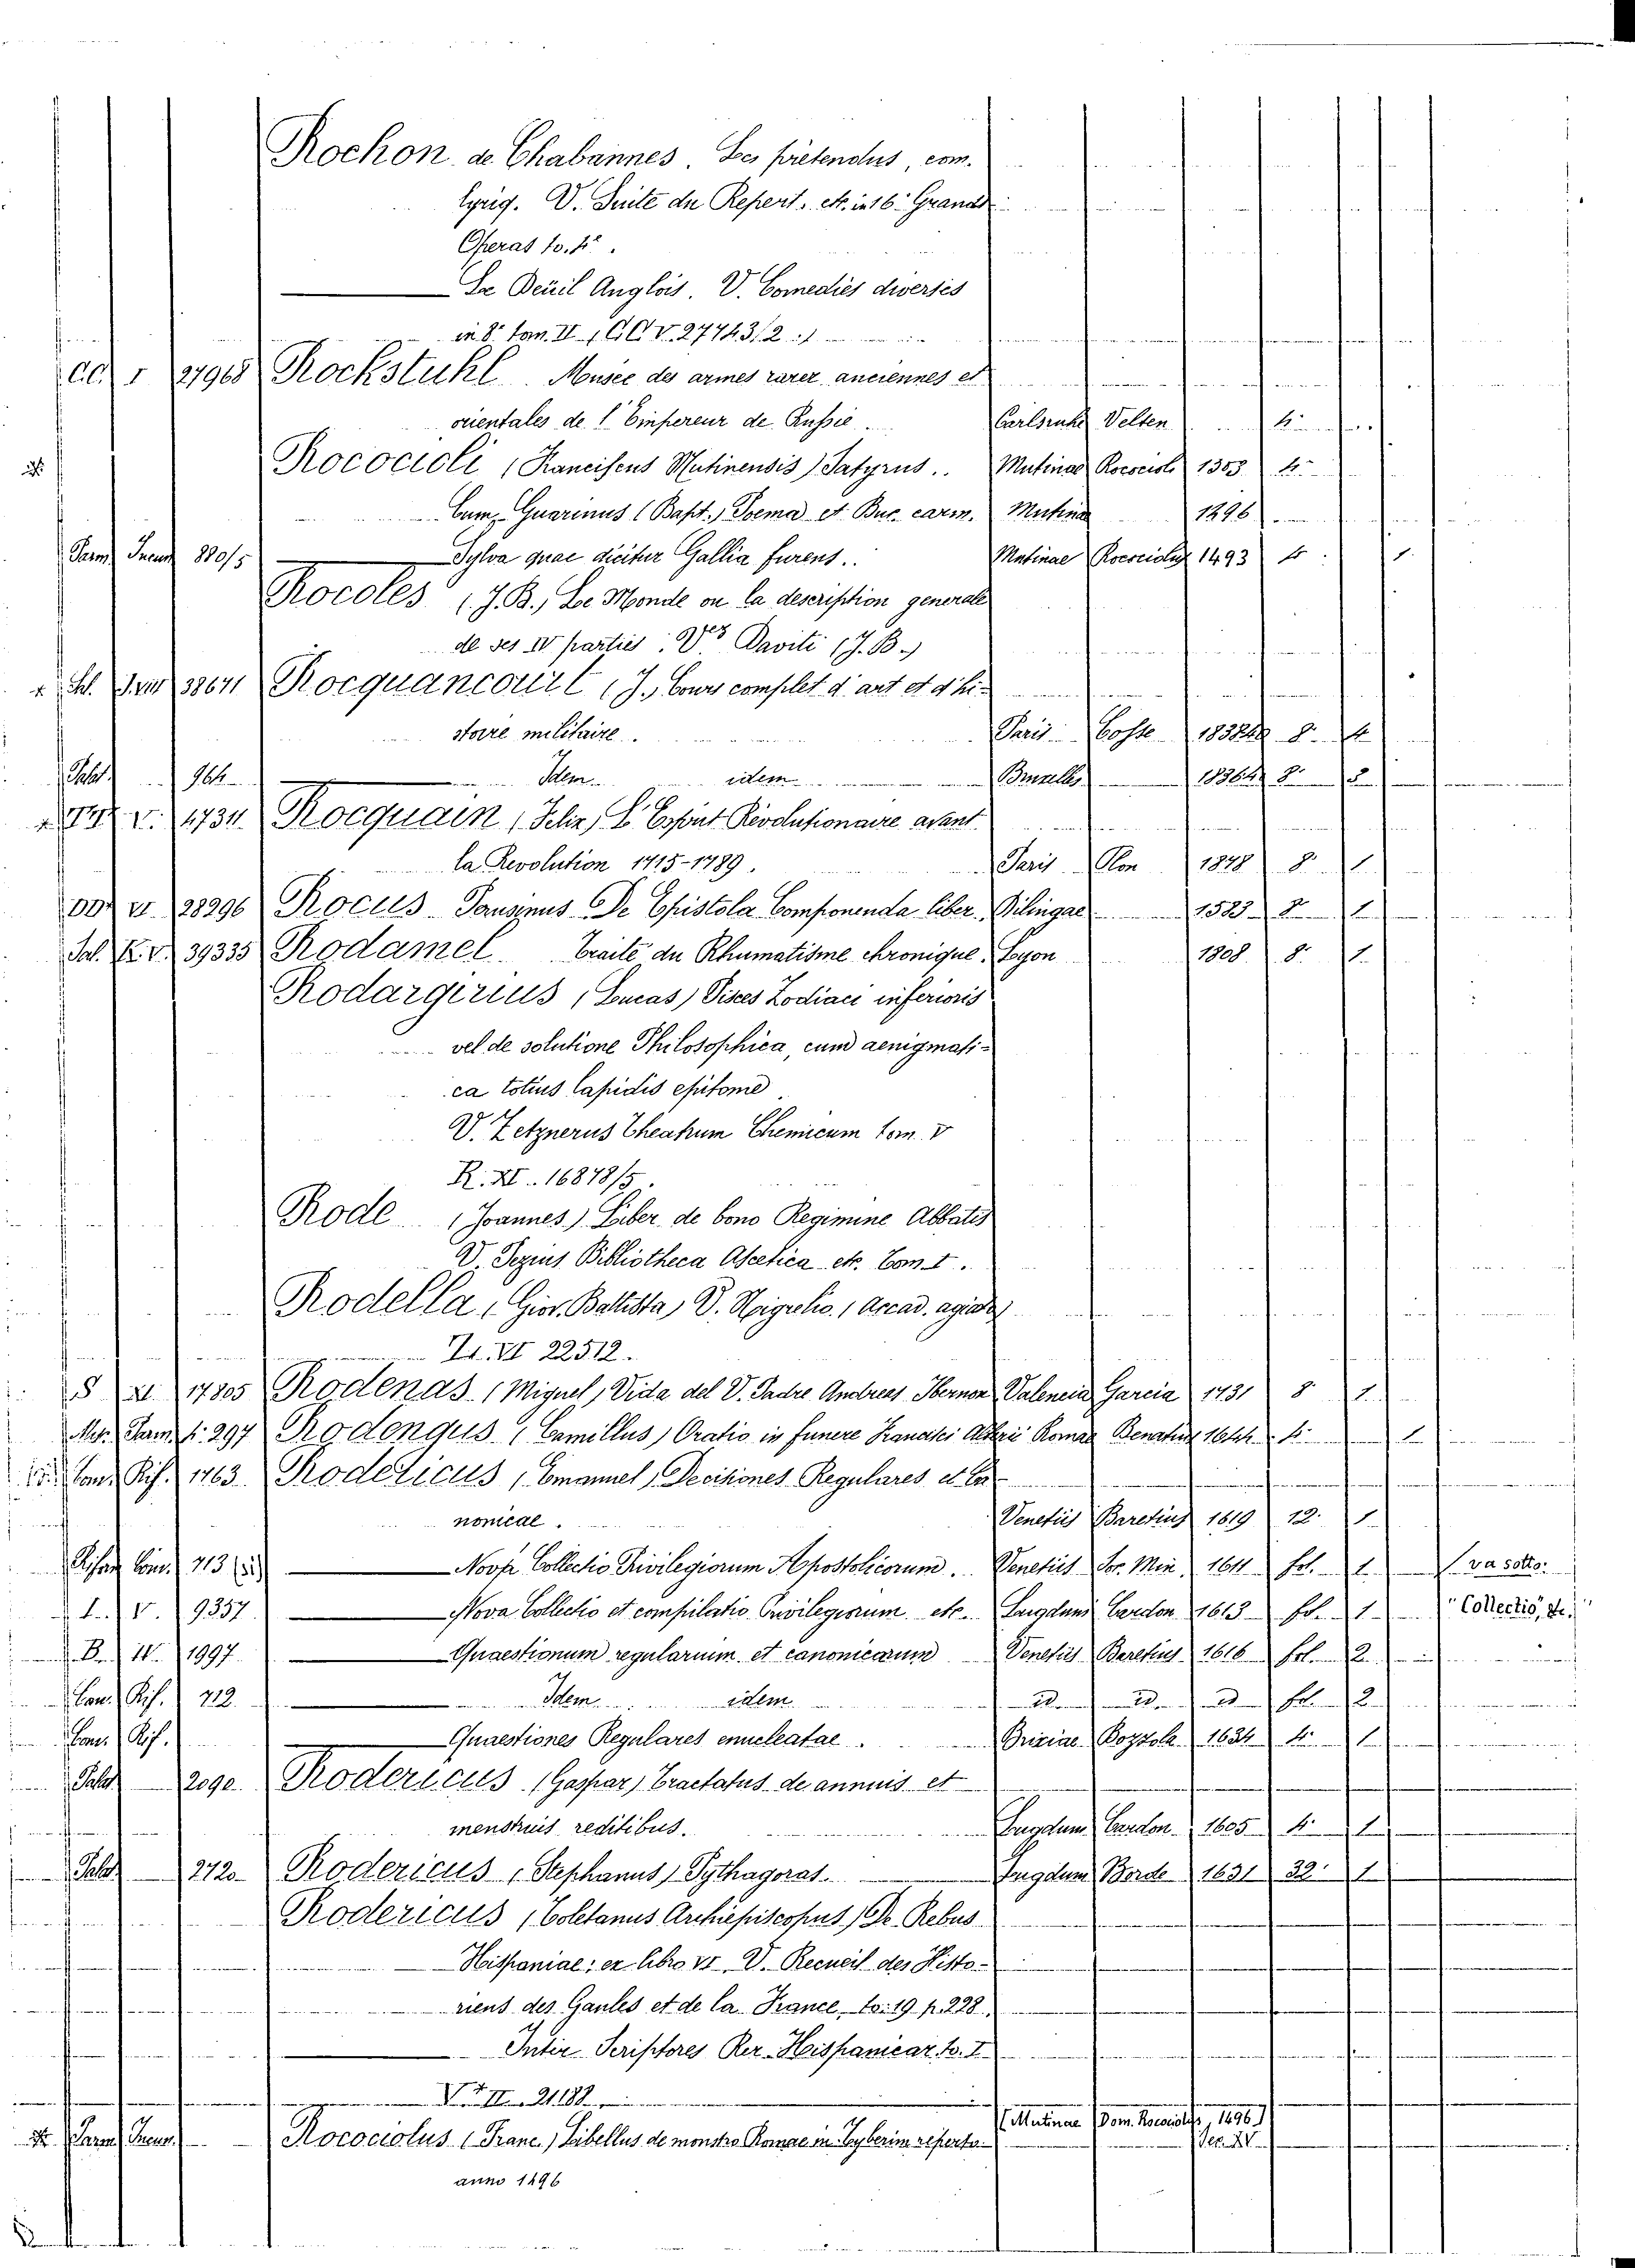 Rochon de Chabannes. Les prétendus, com.
lyrig. V. Suite du Repert. etc. in 16. Grands
Operas to. 4º.
Le Deüil Anglois. V. Comedies diverses
in 8º tom. II (CC V. 27743/2.)
CC I 27968 Rockstuhl. Musée des armes rares anciennes et
orientales de l'Empereur de Russie. Carlsruhe Velten 4.
Rococioli (Franciscus Mutinensis) Satyrus. Mutinae Rococioli 1303 4.
Cum Guarinus (Bapt.) Poema et Buc. carm. Mutina 1496
Parm. Incun 880/5 Sylva quae dicitur Gallia furens. Mutinae Rococciolus 1493 4. 1.
Rocoles (J. B.) Le Monde ou la description generale
de ses IV parties. Vez Daviti (J. B.)
38671 Rocquancourt (J.) Cours complet d'art et d'hi-
stoire militaire. Paris Cosse 8. 4
Palat. 964 Idem idem Bruxelles 8. 5
V. 4734. Rocquain (Felix) L'Esprit Révolutionaire avant
la Revolution 1715-1789. Paris Plon 1878 8. 1
DD VI 28296 Rocus Pansanus De Epistola Componenda liber. Dilingae 1583 8. 1
Sal. K. V. 39335 Rodamel Traité du Rhumatisme chronique. Lyon 1808 8. 1.
Rodargirius (Lucas) Pisces Zodiaci inferioris
vel de solutione Philosophica, cum aenigmati-
ca totius lapidis epitome
V. Zetznerus Theatrum Chemicum tom. V
R. XI. 16878/5.
Rode (Joannes) Liber de bono Regimine Abbatis
V. Pezius Bibliotheca Ascetica etc. Tom. I.
Rodella (Giov. Battista) V. (Accad. agiata)
VI 22512.
§ XI 17805 Rodenas (Miguel) Vida del V. Padre Andrees Hernon Valencia Garcia 1731 8 1.
Mis. Parm. f. 297 Rodengus (Camillus) Oratio in funere Francisci Romae 4. 1
Conv. Rif. 1763. Rodericus (Emanuel) Decisiones Regulares et Ca-
nonicae. Venetiis Baretius 1619 12. 1
Rifor. Conv. 713 Nova Collectio Privilegiorum Apostolicorum. Venetiis Sor. Min. 1611 fol. 1. va sotto.
L. V. 9357 Nova Collectio et compilatio Privilegiorum etc. Lugduni Cardon 1613 fol. 1 "Collectio, de."
B. IV. 1997 Quaestionum regularium et canonicarum Venetiis Baretius 1616 fol. 2
Conv. Rif. 712 Idem idem id id id fol. 2
Conv. Rif. Quaestiones Regulares enucleatae. Brixiae 4. 1
Palat 2090. Rodericus (Gaspar) Tractatus de annuis et
menstruis reditibus. Lugdum Cardon. 1605 4. 1
Palat 2720 Rodericus (Stephanus) Pythagoras. Lugdum Borde 1631 32. 1
Rodericus (Toletanus Archiepiscopus) De Rebus
Hispaniae: ex libro VI V. Recueil des Histo-
riens des Gaules et de la France, to. 19 p. 228.
Inter Scriptores Rer. Hispanicar. to. I.
V. II. 21188
Parm. Incun. Rococciolus (Franc.) Libellus de monstro Romae in Tyberim reperto (Mutinae Dom. Rococciolus, 1496) Sec. XV
anno 1496